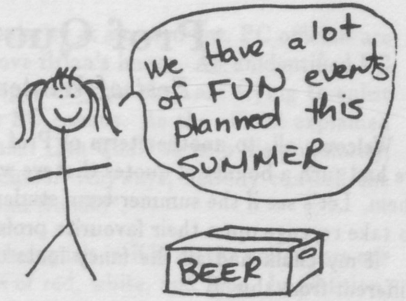 we Have a lot
of FUN events
planned this
SUMMER
BEER